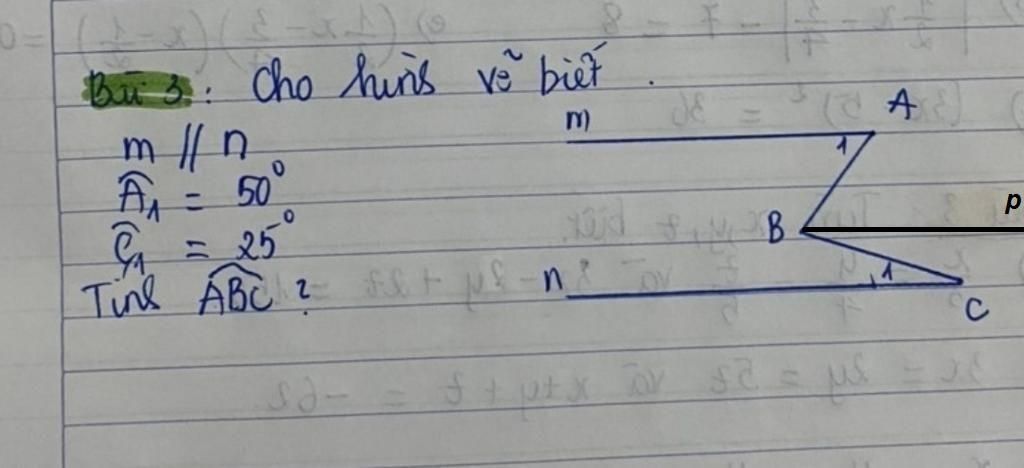 Bài 3: Cho hình vẽ biết.
m // n
Â₁ = 50°
Ĉ₁ = 25°
Tính ABC ?
m
A
1
B
p
n
1
C